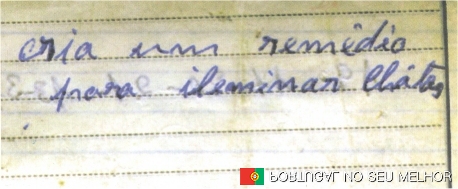 cria um remédio
para ileminar Chátos
PORTUGAL NO SEU MELHOR